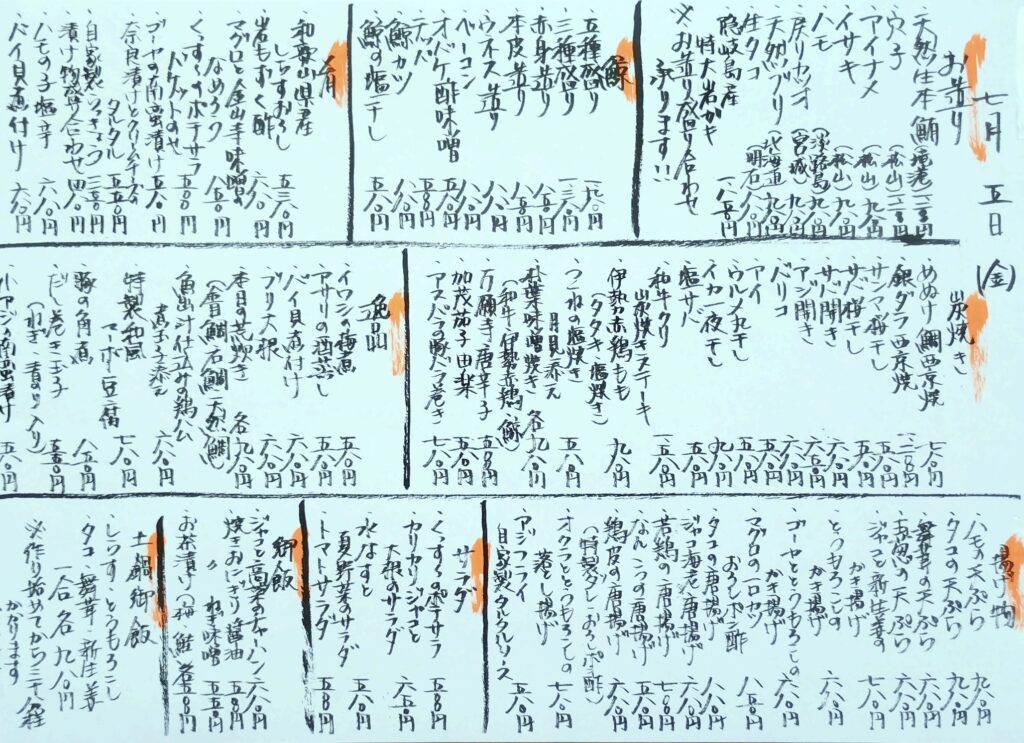 七月 五日 (金)
お造り
・天然生本鮪(塩釜)
・穴子(松山)
・アイナメ(松山)
・イサキ(松山)九八〇円
・ハモ(淡路島)九八〇円
・戻りカツオ(宮城)九八〇円
・天然ブリ(北海道)九八〇円
・生タコ(明石)九八〇円
・隠岐島産
特大岩ガキ 一、二八〇円
※お造り盛り合わせ
承ります!!
鯨
・五種盛り
・三種盛り
・赤身造り
・本皮造り
・ウネス造り
・オバケ酢味噌
・ベーコン
・テッパ
・鯨カツ
・鯨の塩干し
肴
・和歌山県産
しらすおろし 五三〇円
・岩もずく酢 六八〇円
・マグロと金山寺味噌の
なめろう 八五〇円
・くんすけポテサラ
バケットのせ 五八〇円
・ゴーヤの南蛮漬け 五八〇円
・奈良漬けとクリームチーズの
タルタル 五五〇円
・自家製らっきょう
・漬け物盛り合わせ 四八〇円
・ハモの子塩辛 六八〇円
・バイ貝煮付け 六八〇円
炭焼き
・めぬけ鯛西京焼 七八〇円
・銀ダラ西京焼
・サンマ梅干し 五八〇円
・サバ梅干し 五五〇円
・サッパ開き 五五〇円
・アジ開き 六五〇円
・バリコ 六八〇円
・アイ 五五〇円
・ウルメ丸干し 五五〇円
・イカ一夜干し 九八〇円
・塩サバ 五八〇円
・和牛クリ
炭焼きステーキ
・伊勢赤鶏もも
(タタキ・塩焼き) 九八〇円
・つくねの塩焼き
月見添え 五八〇円
・朴葉味噌焼き 各九八〇円
(和牛・伊勢赤鶏・鯨)
・万願寺唐辛子 五八〇円
・加茂茄子田楽 五八〇円
・アスパラの豚バラ巻き 七八〇円
逸品
・イワシの梅煮 五八〇円
・アサリの酒蒸し 五八〇円
・バイ貝煮付け 六八〇円
・ブリ大根 六八〇円
・本日の荒炊き 各九八〇円
(真鯛・石鯛・天然鯛)
・魚出汁仕込み鶏ハム
煮玉子添え 六八〇円
・特製和風
マーボー豆腐 七八〇円
・豚の角煮 八五〇円
・だし巻き玉子
(ねぎ・青のり入り)
・小アジの南蛮漬け 五八〇円
揚げ物
・ハモの天ぷら 九八〇円
・タコの天ぷら 九八〇円
・舞茸の天ぷら 六八〇円
・玉葱の天ぷら 六八〇円
・ジャコと新生姜の
かき揚げ 七八〇円
・とうもろこしの
かき揚げ 六八〇円
・ゴーヤととうもろこしの
かき揚げ 六八〇円
・マグロの一口カツ
おろしポン酢 八五〇円
・タコの唐揚げ 八八〇円
・ジャコ海老唐揚げ 六八〇円
・若鶏の唐揚げ
・なんこつの唐揚げ 五五〇円
・鶏皮の唐揚げ 六八〇円
(特製タレ・おろしポン酢)
・オクラととうもろこしの
落とし揚げ 七八〇円
・アジフライ
自家製タルタルソース 五五〇円
サラダ
・くんすけポテサラ 五八〇円
・カリカリジャコと
大根のサラダ 六五〇円
・水なすと
夏野菜のサラダ 五八〇円
・トマトサラダ 五五〇円
御飯
・ジャコと高菜のチャーハン 六八〇円
・焼きおにぎり醤油
・〃 ねぎ味噌
・お茶漬け(梅・鮭)各五八〇円
土鍋御飯
・しらすとうもろこし
・タコ・舞茸・新生姜
一合各九八〇円
※作り始めてから三十分程
かかります